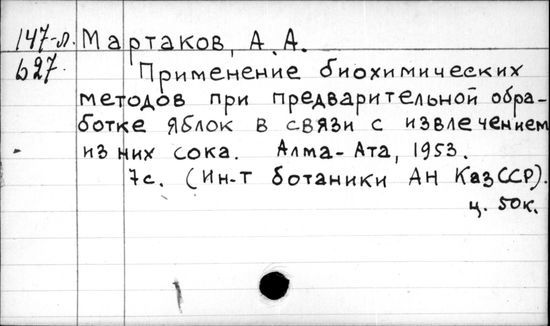 147-л. Мартаков, А.А.
627. Применение биохимических
методов при предварительной обра-
ботке яблок в связи с извлечением
из них сока. Алма-Ата, 1953.
7с. (Ин-т ботаники АН КазССР).
ц. 50к.